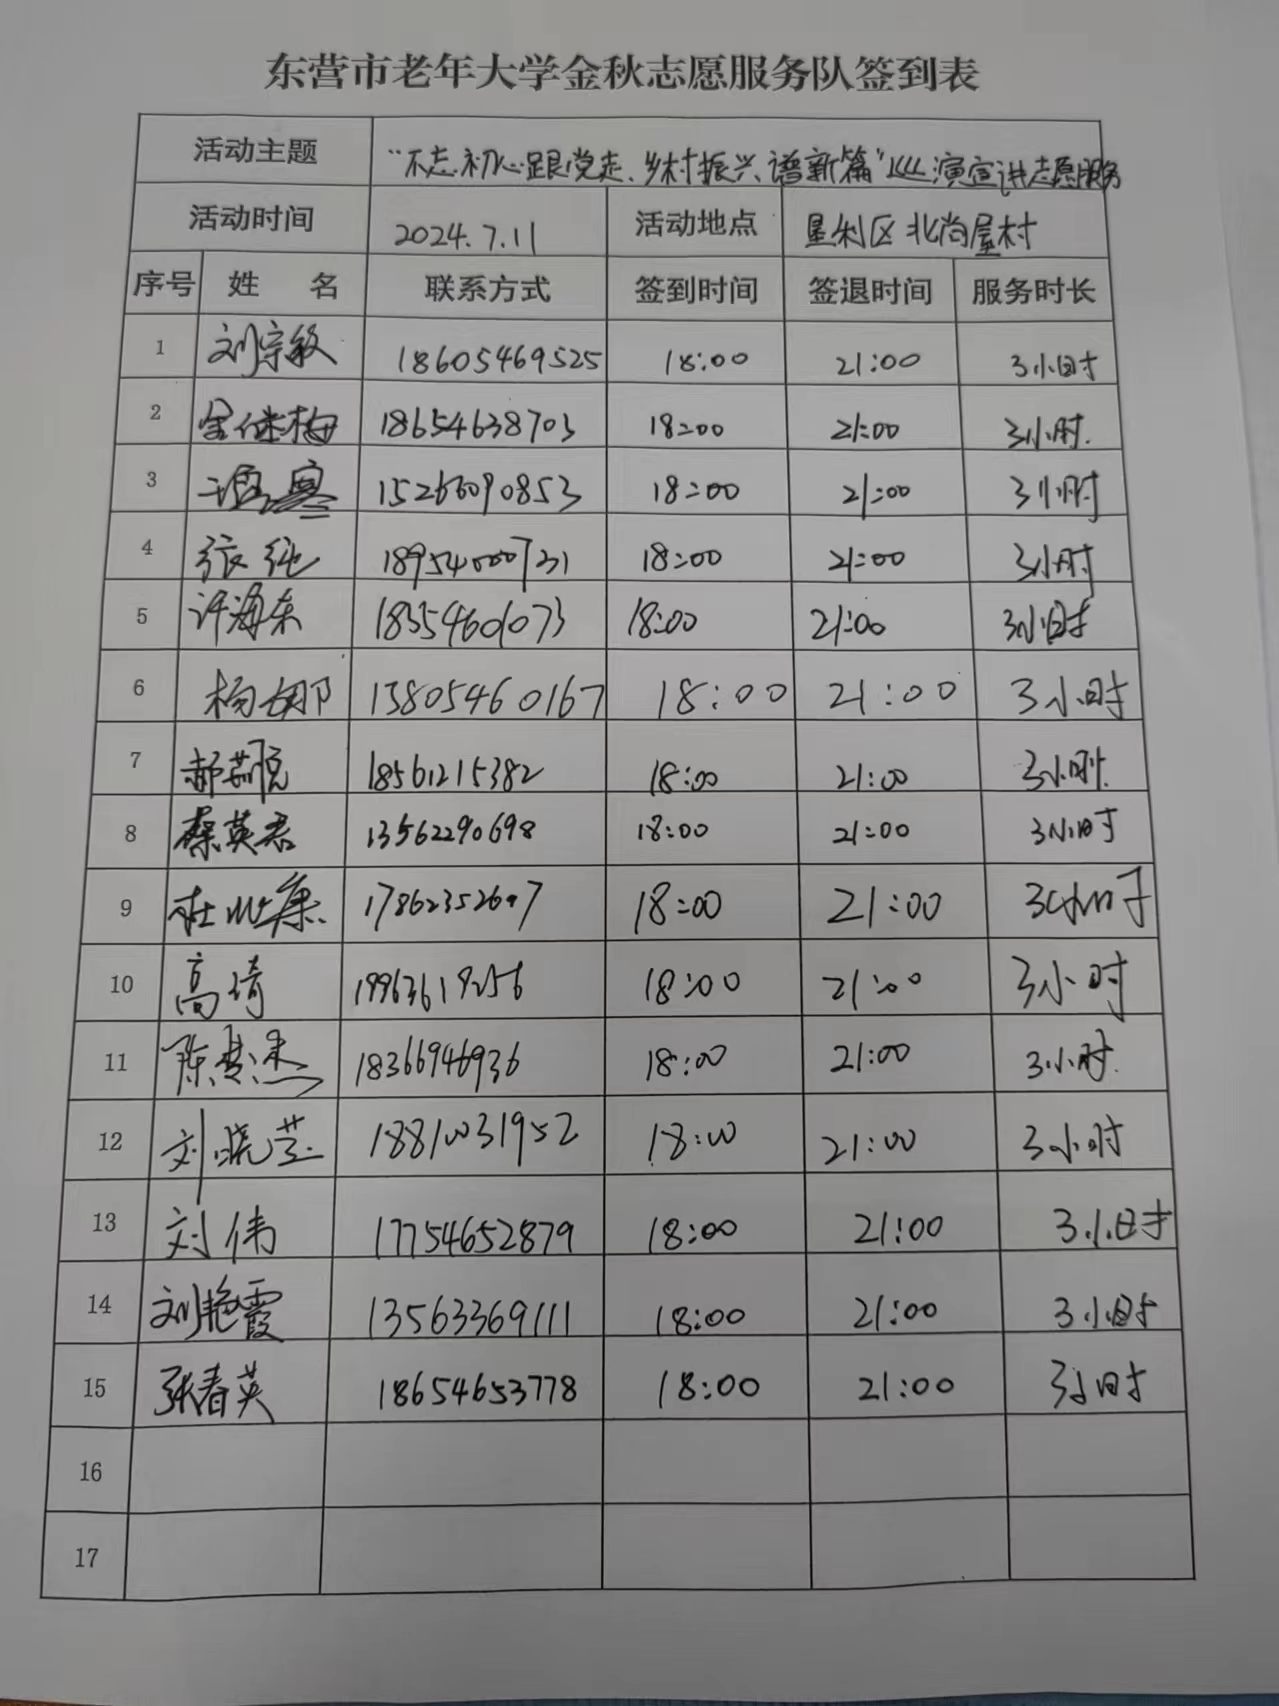 东营市老年大学金秋志愿服务队签到表
活动主题 “不忘初心跟党走、乡村振兴谱新篇”巡演宣讲志愿服务
活动时间 2024.7.11 活动地点 垦利区北尚屋村
序号 姓 名 联系方式 签到时间 签退时间 服务时长
1 刘宗敏 18605469525 18:00 21:00 3小时
2 18654638703 18:00 21:00 3小时.
3 15266090853 18:00 21:00 3小时
4 张纯 18954000731 18:00 21:00 3小时
5 许海东 18354601073 18:00 21:00 3小时
6 杨娜 13805460167 18:00 21:00 3小时
7 郝莉悦 18561215382 18:00 21:00 3小时.
8 蔡英君 13562290698 18:00 21:00 3小时
9 17862352607 18:00 21:00 3小时
10 高琦 19963619256 18:00 21:00 3小时
11 18366946936 18:00 21:00 3小时.
12 刘晓芸 18810031952 18:00 21:00 3小时
13 刘伟 17754652879 18:00 21:00 3小时
14 刘艳霞 13563369111 18:00 21:00 3小时
15 张春英 18654653778 18:00 21:00 3小时
16
17